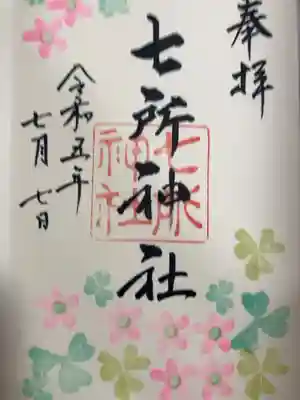 奉拝
七所神社
七所
神社
令和五年
七月七日